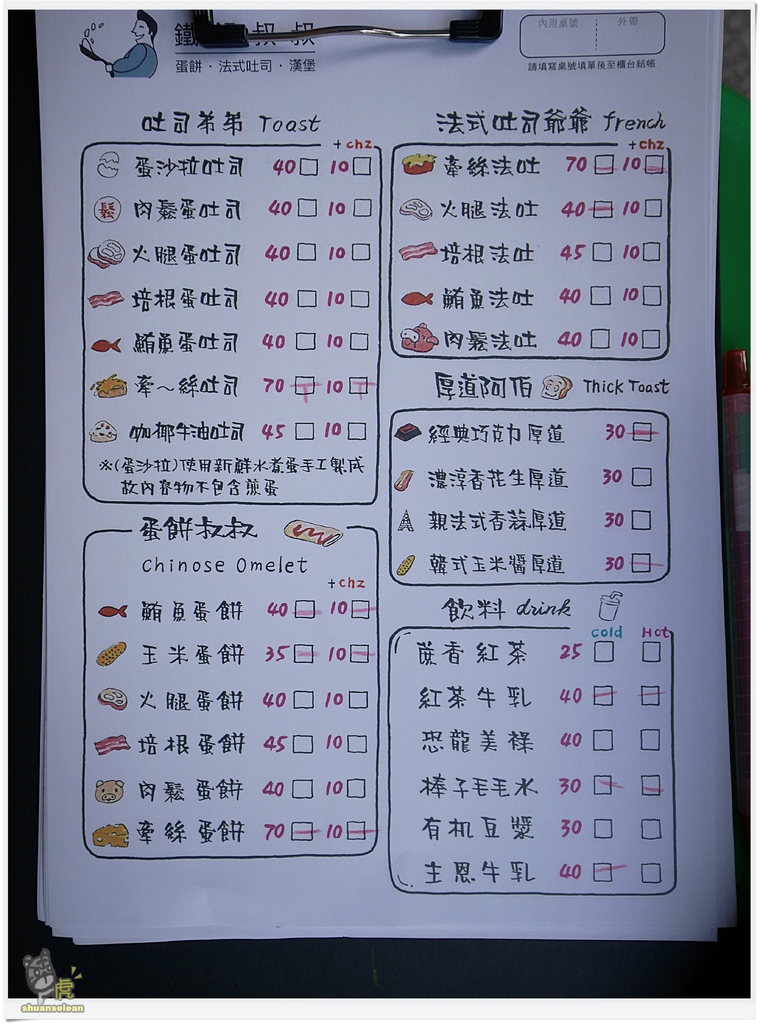 內用桌號 外帶
蛋餅·法式吐司·漢堡
請填寫桌號填單後至櫃台結帳
吐司弟弟 Toast
+chz
蛋沙拉吐司 40 10
鬆
肉鬆蛋吐司 40 10
火腿蛋吐司 40 10
培根蛋吐司 40 10
鮪魚蛋吐司 40 10
牽~絲吐司 70 10
咖椰牛油吐司 45 10
※(蛋沙拉)使用新鮮水煮蛋手工製成
故內容物不包含煎蛋
蛋餅叔叔
Chinose Omelet
+chz
鮪魚蛋餅 40 10
玉米蛋餅 35 10
火腿蛋餅 40 10
培根蛋餅 45 10
肉鬆蛋餅 40 10
牽絲蛋餅 70 10
法式吐司爺爺 french
+chz
牽絲法吐 70 10
火腿法吐 40 10
培根法吐 45 10
鮪魚法吐 40 10
肉鬆法吐 40 10
厚道阿伯 Thick Toast
經典巧克力厚道 30
濃淳香花生厚道 30
親法式香蒜厚道 30
韓式玉米醬厚道 30
飲料 drink
cold Hot
蔗香紅茶 25
紅茶牛乳 40
恐龍美祿 40
棒子毛毛水 30
有机豆漿 30
主恩牛乳 40
虎
shuanselean